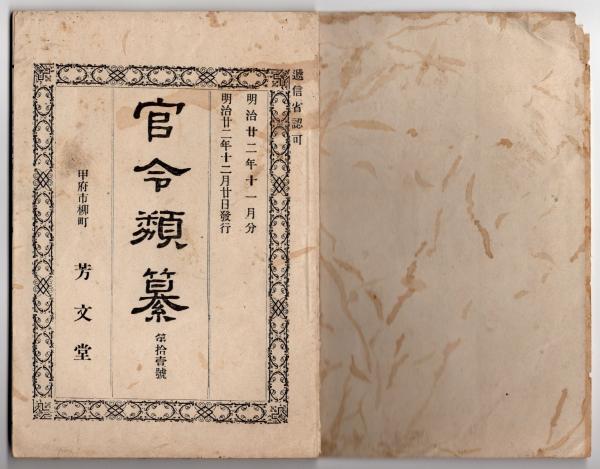 逓信省認可
明治廿二年十一月分
明治廿二年十二月廿日發行
官令類纂
第拾壹號
甲府市柳町
芳文堂